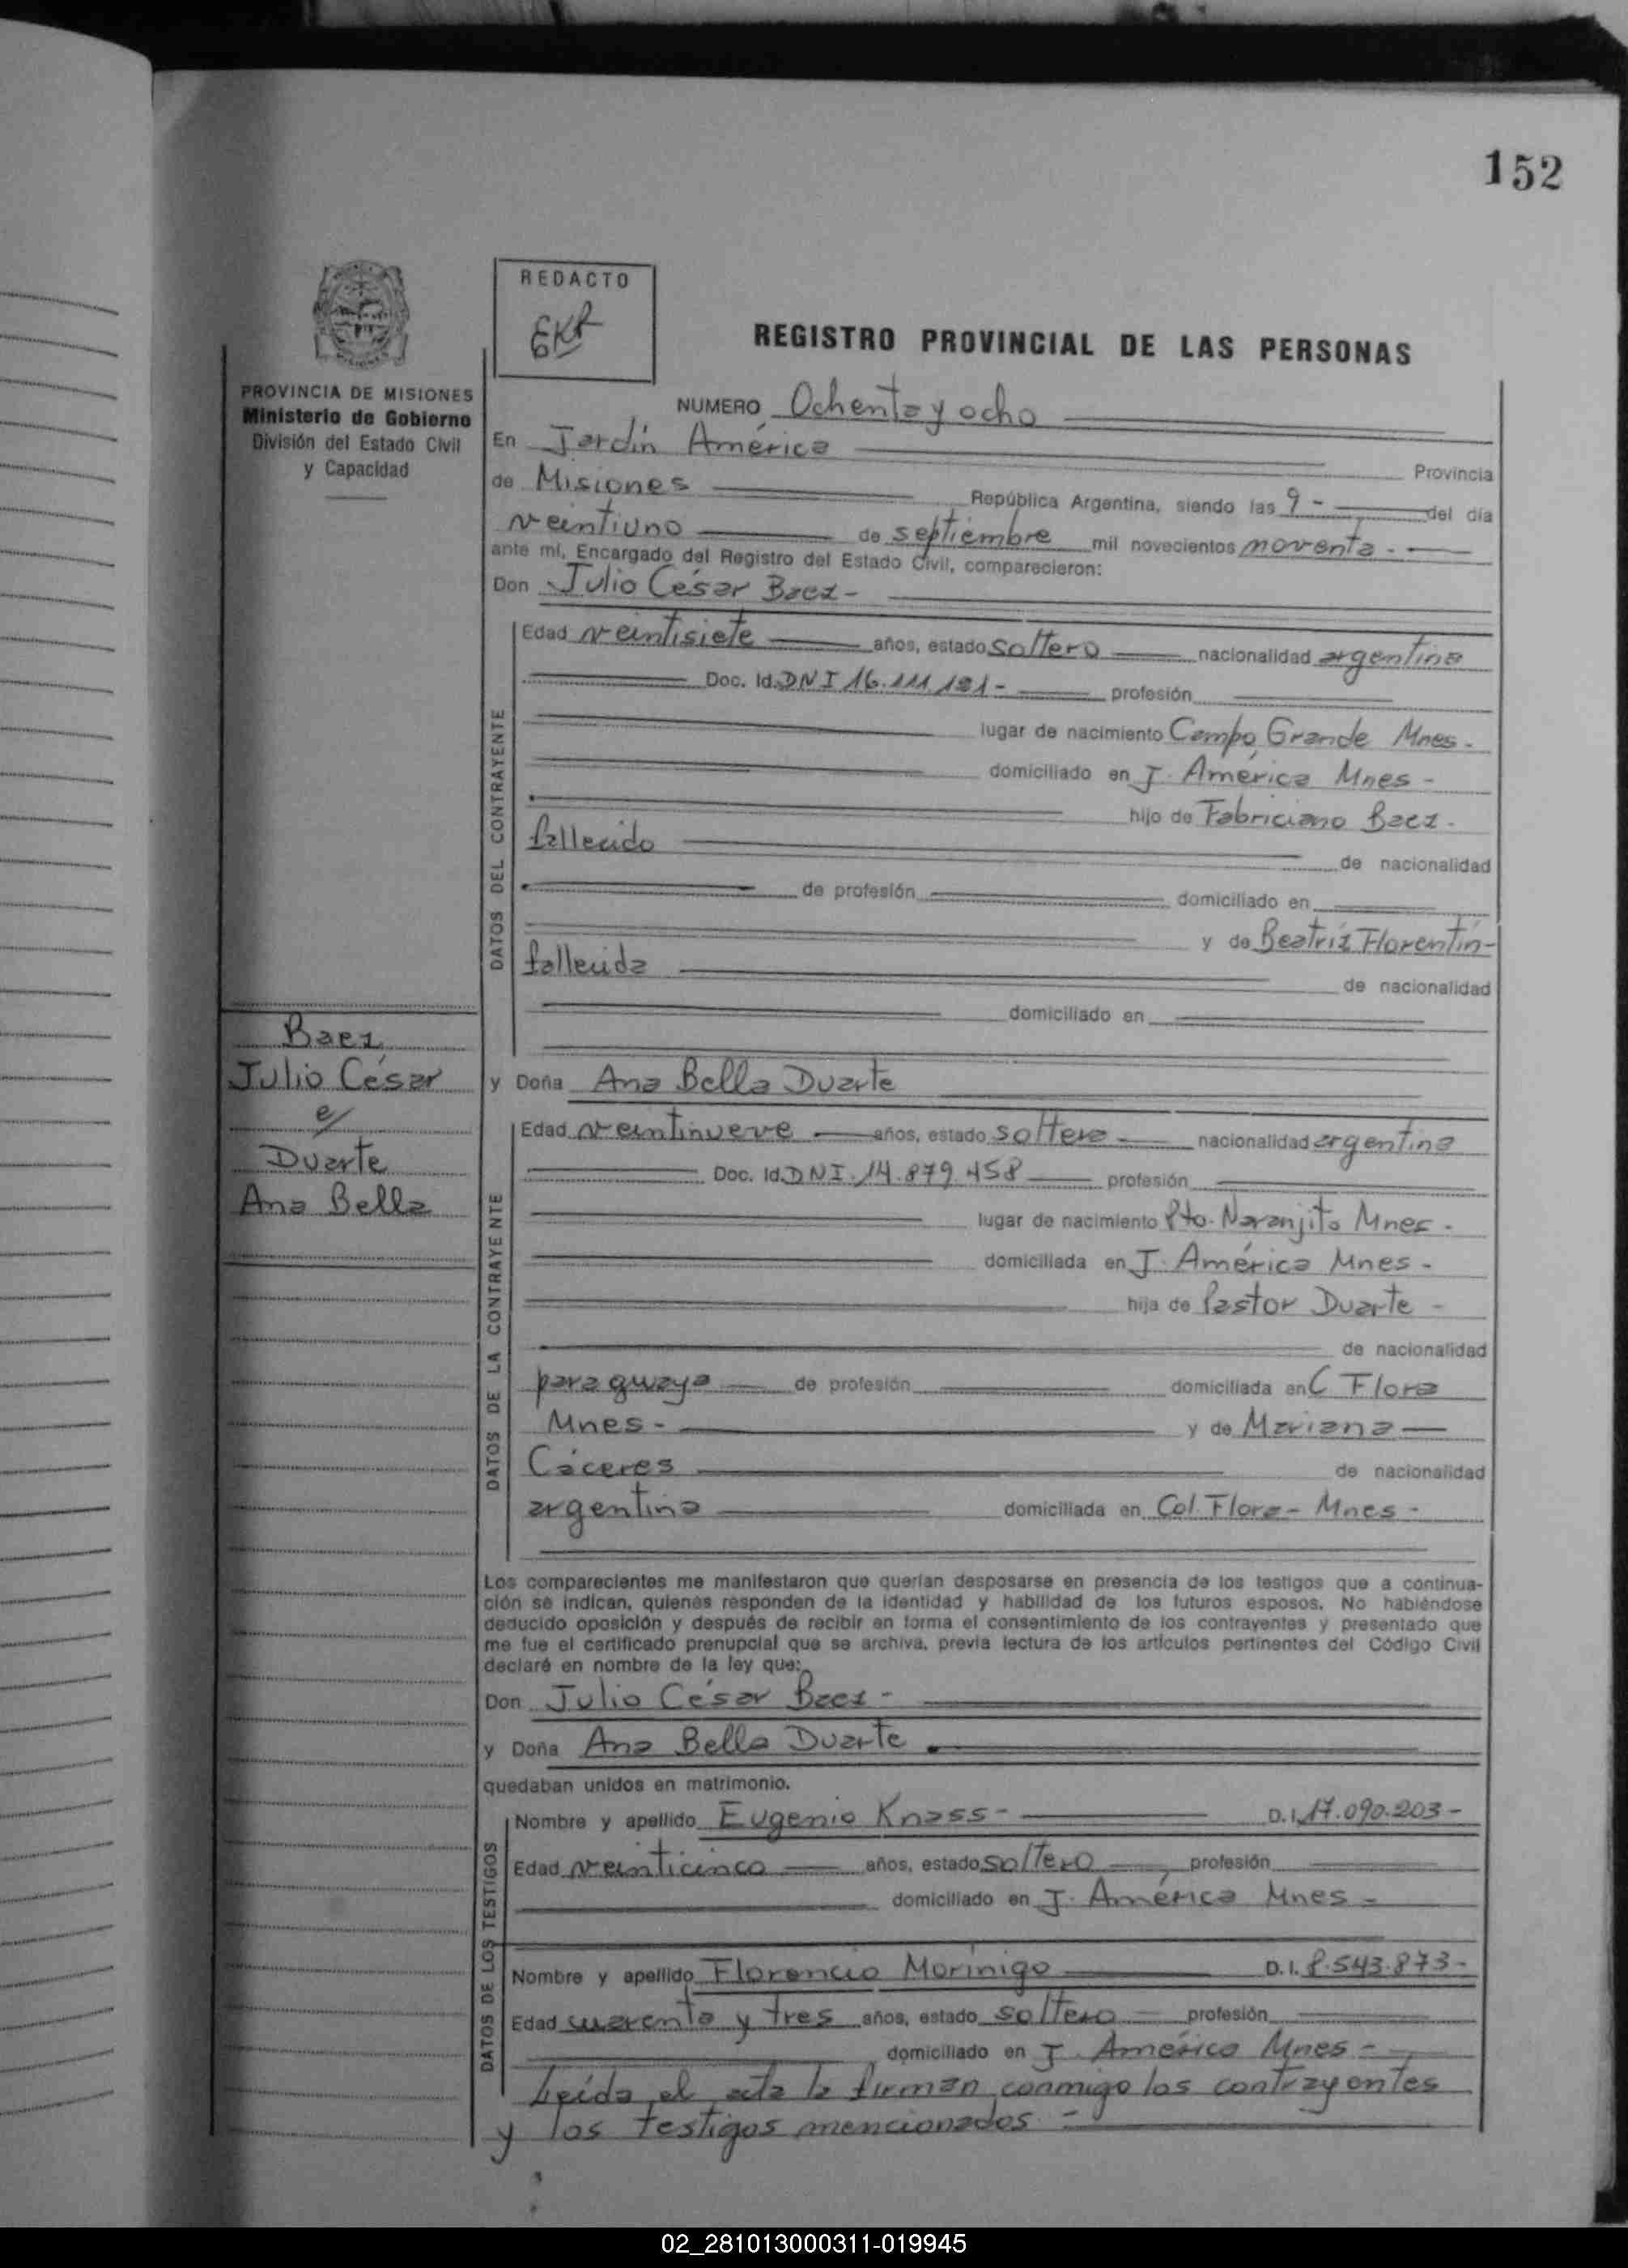 152
REDACTO
EKR
REGISTRO PROVINCIAL DE LAS PERSONAS
PROVINCIA DE MISIONES
Ministerio de Gobierno
División del Estado Civil
y Capacidad
NUMERO Ochenta y ocho
En Jardín América Provincia
de Misiones República Argentina, siendo las 9 - del día
veintiuno de septiembre mil novecientos noventa.-
ante mí, Encargado del Registro del Estado Civil, comparecieron:
Don Julio César Baez -
DATOS DEL CONTRAYENTE
Edad veintisiete años, estado soltero nacionalidad argentina
Doc. Id. DNI 16.111.181- profesión
lugar de nacimiento Campo Grande Mnes -
domiciliado en J. América Mnes -
hijo de Fabriciano Baez -
fallecido de nacionalidad
de profesión domiciliado en
y de Beatríz Florentín -
fallecida de nacionalidad
domiciliado en
Baez
Julio César
c/
Duarte
Ana Bella
y Doña Ana Bella Duarte
DATOS DE LA CONTRAYENTE
Edad veintinueve años, estado soltera nacionalidad argentina
Doc. Id. DNI. 14.879.458 profesión
lugar de nacimiento Pto. Naranjito Mnes -
domiciliada en J. América Mnes -
hija de Pastor Duarte -
de nacionalidad
paraguaya de profesión domiciliada en C Flora
Mnes - y de Mariana
Cáceres de nacionalidad
argentina domiciliada en Col. Flora - Mnes -
Los comparecientes me manifestaron que querían desposarse en presencia de los testigos que a continua-
ción se indican, quienes responden de la identidad y habilidad de los futuros esposos. No habiéndose
deducido oposición y después de recibir en forma el consentimiento de los contrayentes y presentado que
me fue el certificado prenupcial que se archiva, previa lectura de los artículos pertinentes del Código Civil
declaré en nombre de la ley que:
Don Julio César Baez -
y Doña Ana Bella Duarte
quedaban unidos en matrimonio.
DATOS DE LOS TESTIGOS
Nombre y apellido Eugenio Knass - D.I. 17.090.203 -
Edad veinticinco años, estado soltero profesión
domiciliado en J. América Mnes -
Nombre y apellido Florencio Morínigo D.I. 8.543.873 -
Edad cuarenta y tres años, estado soltero profesión
domiciliado en J. América Mnes -
Leída el acta la firman conmigo los contrayentes
y los testigos mencionados. -
02_281013000311-019945